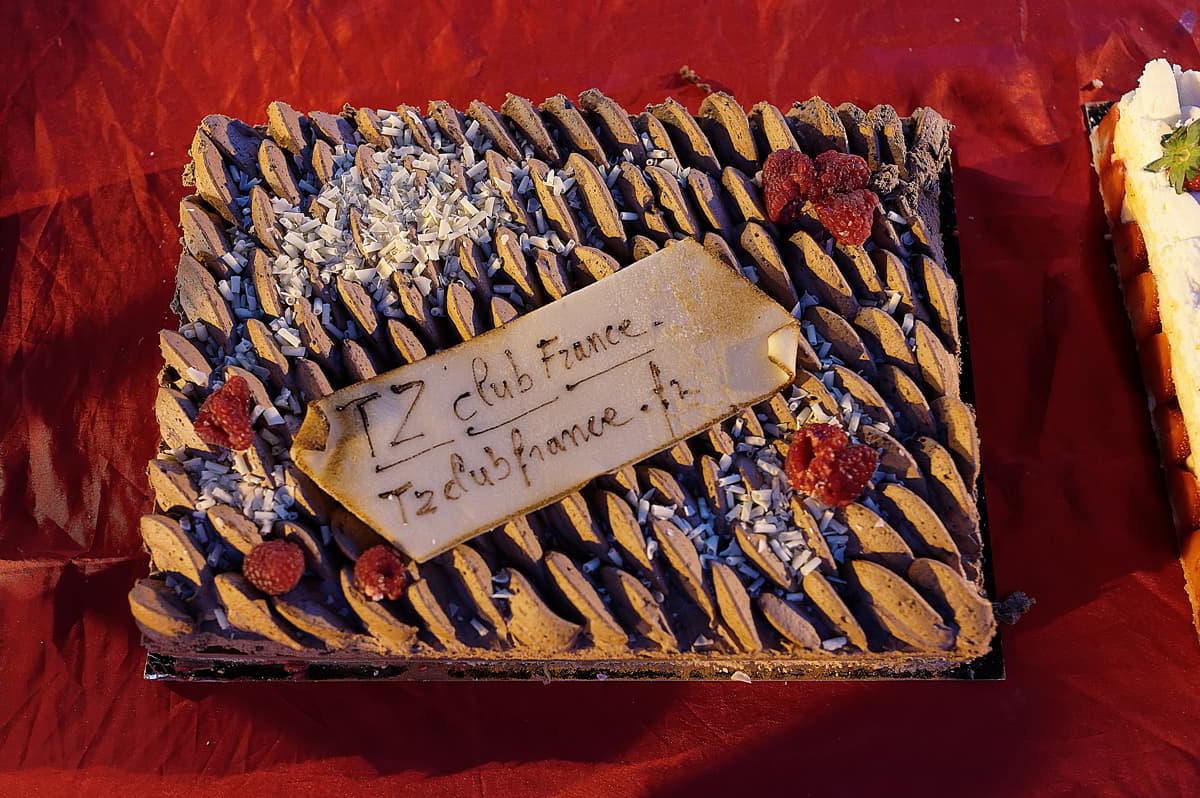 TZ club France.
Tzclubfrance.fr